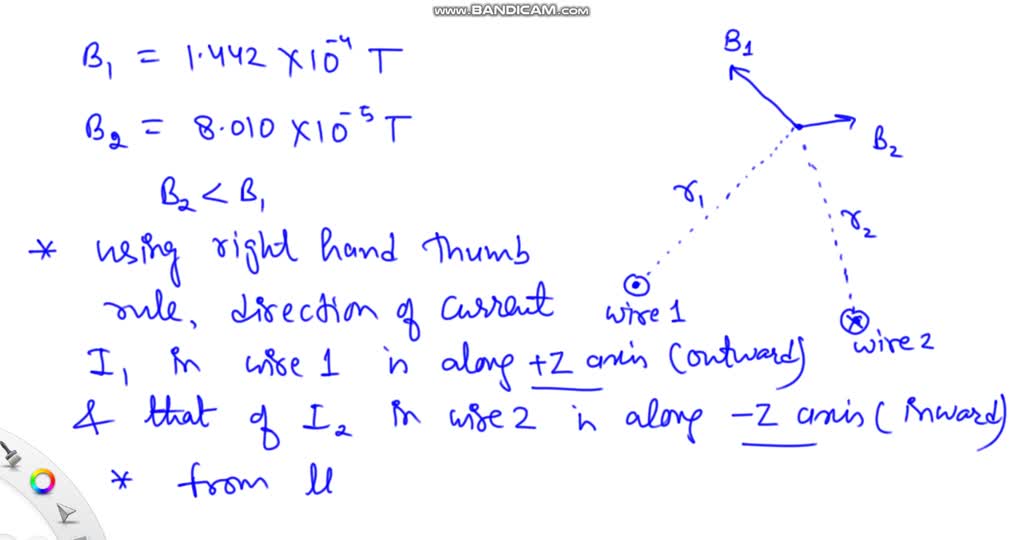 www.BANDICAM.com
B₁ = 1.442 × 10⁻⁴ T
B₂ = 8.010 × 10⁻⁵ T
B₂ < B₁
* using right hand thumb
rule, direction of current
I₁ in wire 1 is along +Z axis (outward)
& that of I₂ in wire 2 is along -Z axis (inward)
* from
B₁
B₂
r₁
r₂
wire 1
wire 2